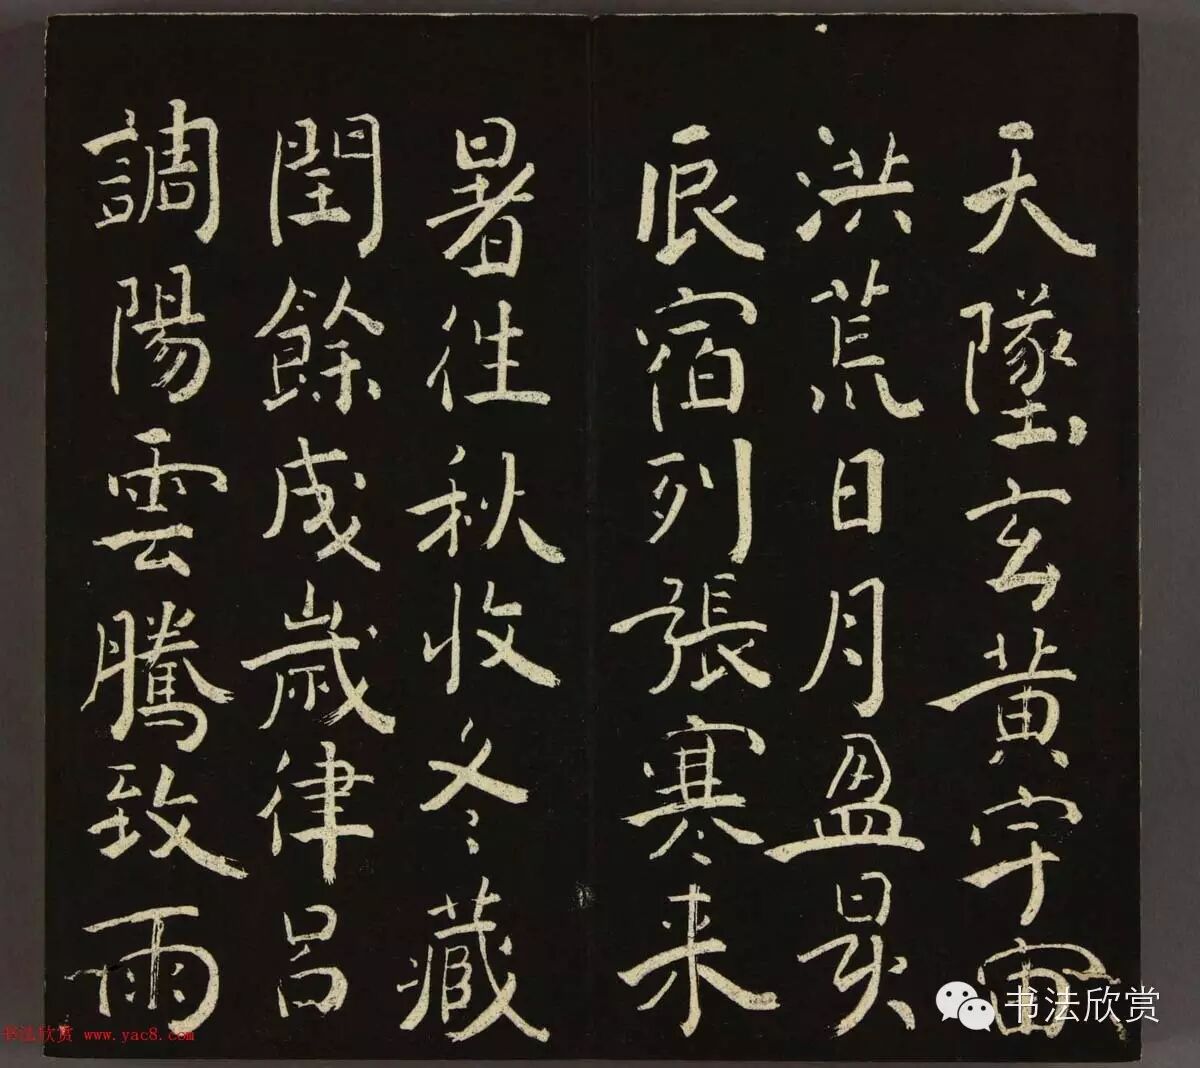 天墬玄黄宇宙
洪荒日月盈昃
辰宿列張寒来
暑往秋收冬藏
閏餘成歳律吕
調陽雲騰致雨
书法欣赏
书法欣赏 www.yac8.com